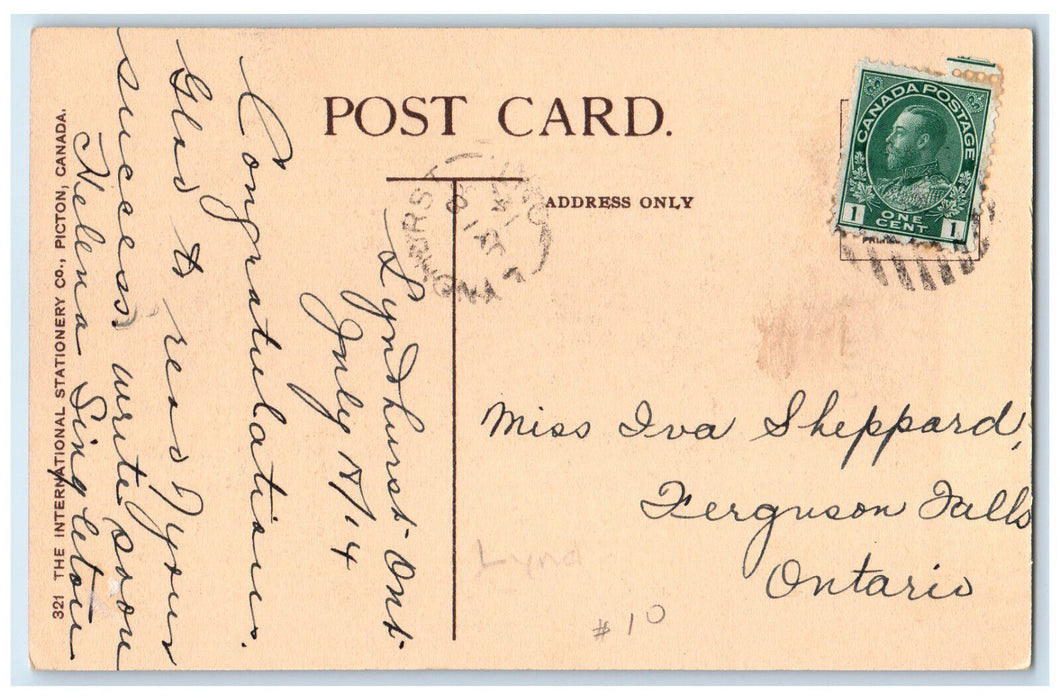 POST CARD.
ADDRESS ONLY
CANADA POSTAGE
1 ONE CENT 1
Lyndhurst Ont.
July 18/14
Congratulations.
Glad to read your
success. write soon
Helena Singleton
321 THE INTERNATIONAL STATIONERY CO., PICTON, CANADA.
Miss Iva Sheppard,
Ferguson Falls
Ontario
Lynd
#10